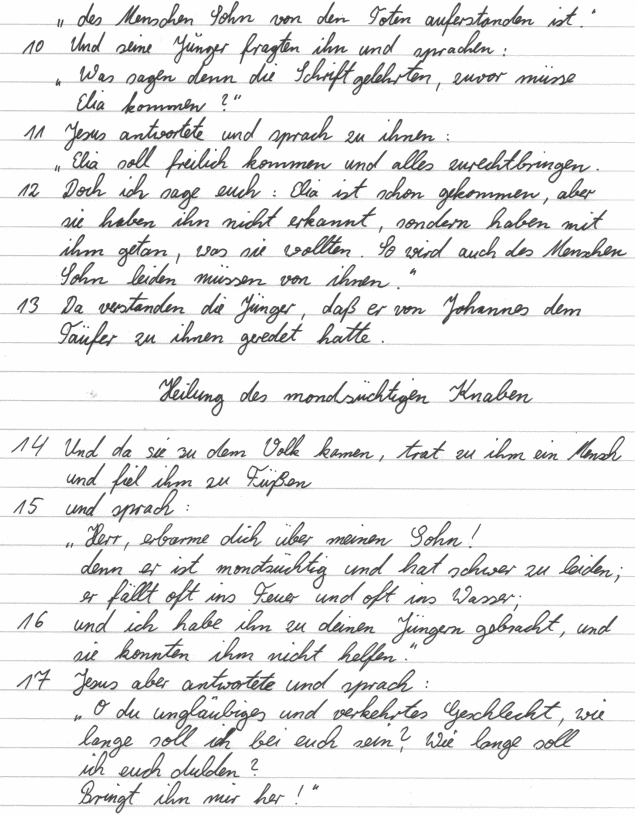 „des Menschen Sohn von den Toten auferstanden ist."
10 Und seine Jünger fragten ihn und sprachen:
„Was sagen denn die Schriftgelehrten, zuvor müsse
Elia kommen?"
11 Jesus antwortete und sprach zu ihnen:
„Elia soll freilich kommen und alles zurechtbringen.
12 Doch ich sage euch: Elia ist schon gekommen, aber
sie haben ihn nicht erkannt, sondern haben mit
ihm getan, was sie wollten. So wird auch des Menschen
Sohn leiden müssen von ihnen."
13 Da verstanden die Jünger, daß er von Johannes dem
Täufer zu ihnen geredet hatte.
Heilung des mondsüchtigen Knaben
14 Und da sie zu dem Volk kamen, trat zu ihm ein Mensch
und fiel ihm zu Füßen
15 und sprach:
„Herr, erbarme dich über meinen Sohn!
denn er ist mondsüchtig und hat schwer zu leiden;
er fällt oft ins Feuer und oft ins Wasser;
16 und ich habe ihn zu deinen Jüngern gebracht, und
sie konnten ihm nicht helfen."
17 Jesus aber antwortete und sprach:
„O du ungläubiges und verkehrtes Geschlecht, wie
lange soll ich bei euch sein? Wie lange soll
ich euch dulden?
Bringt ihn mir her!"